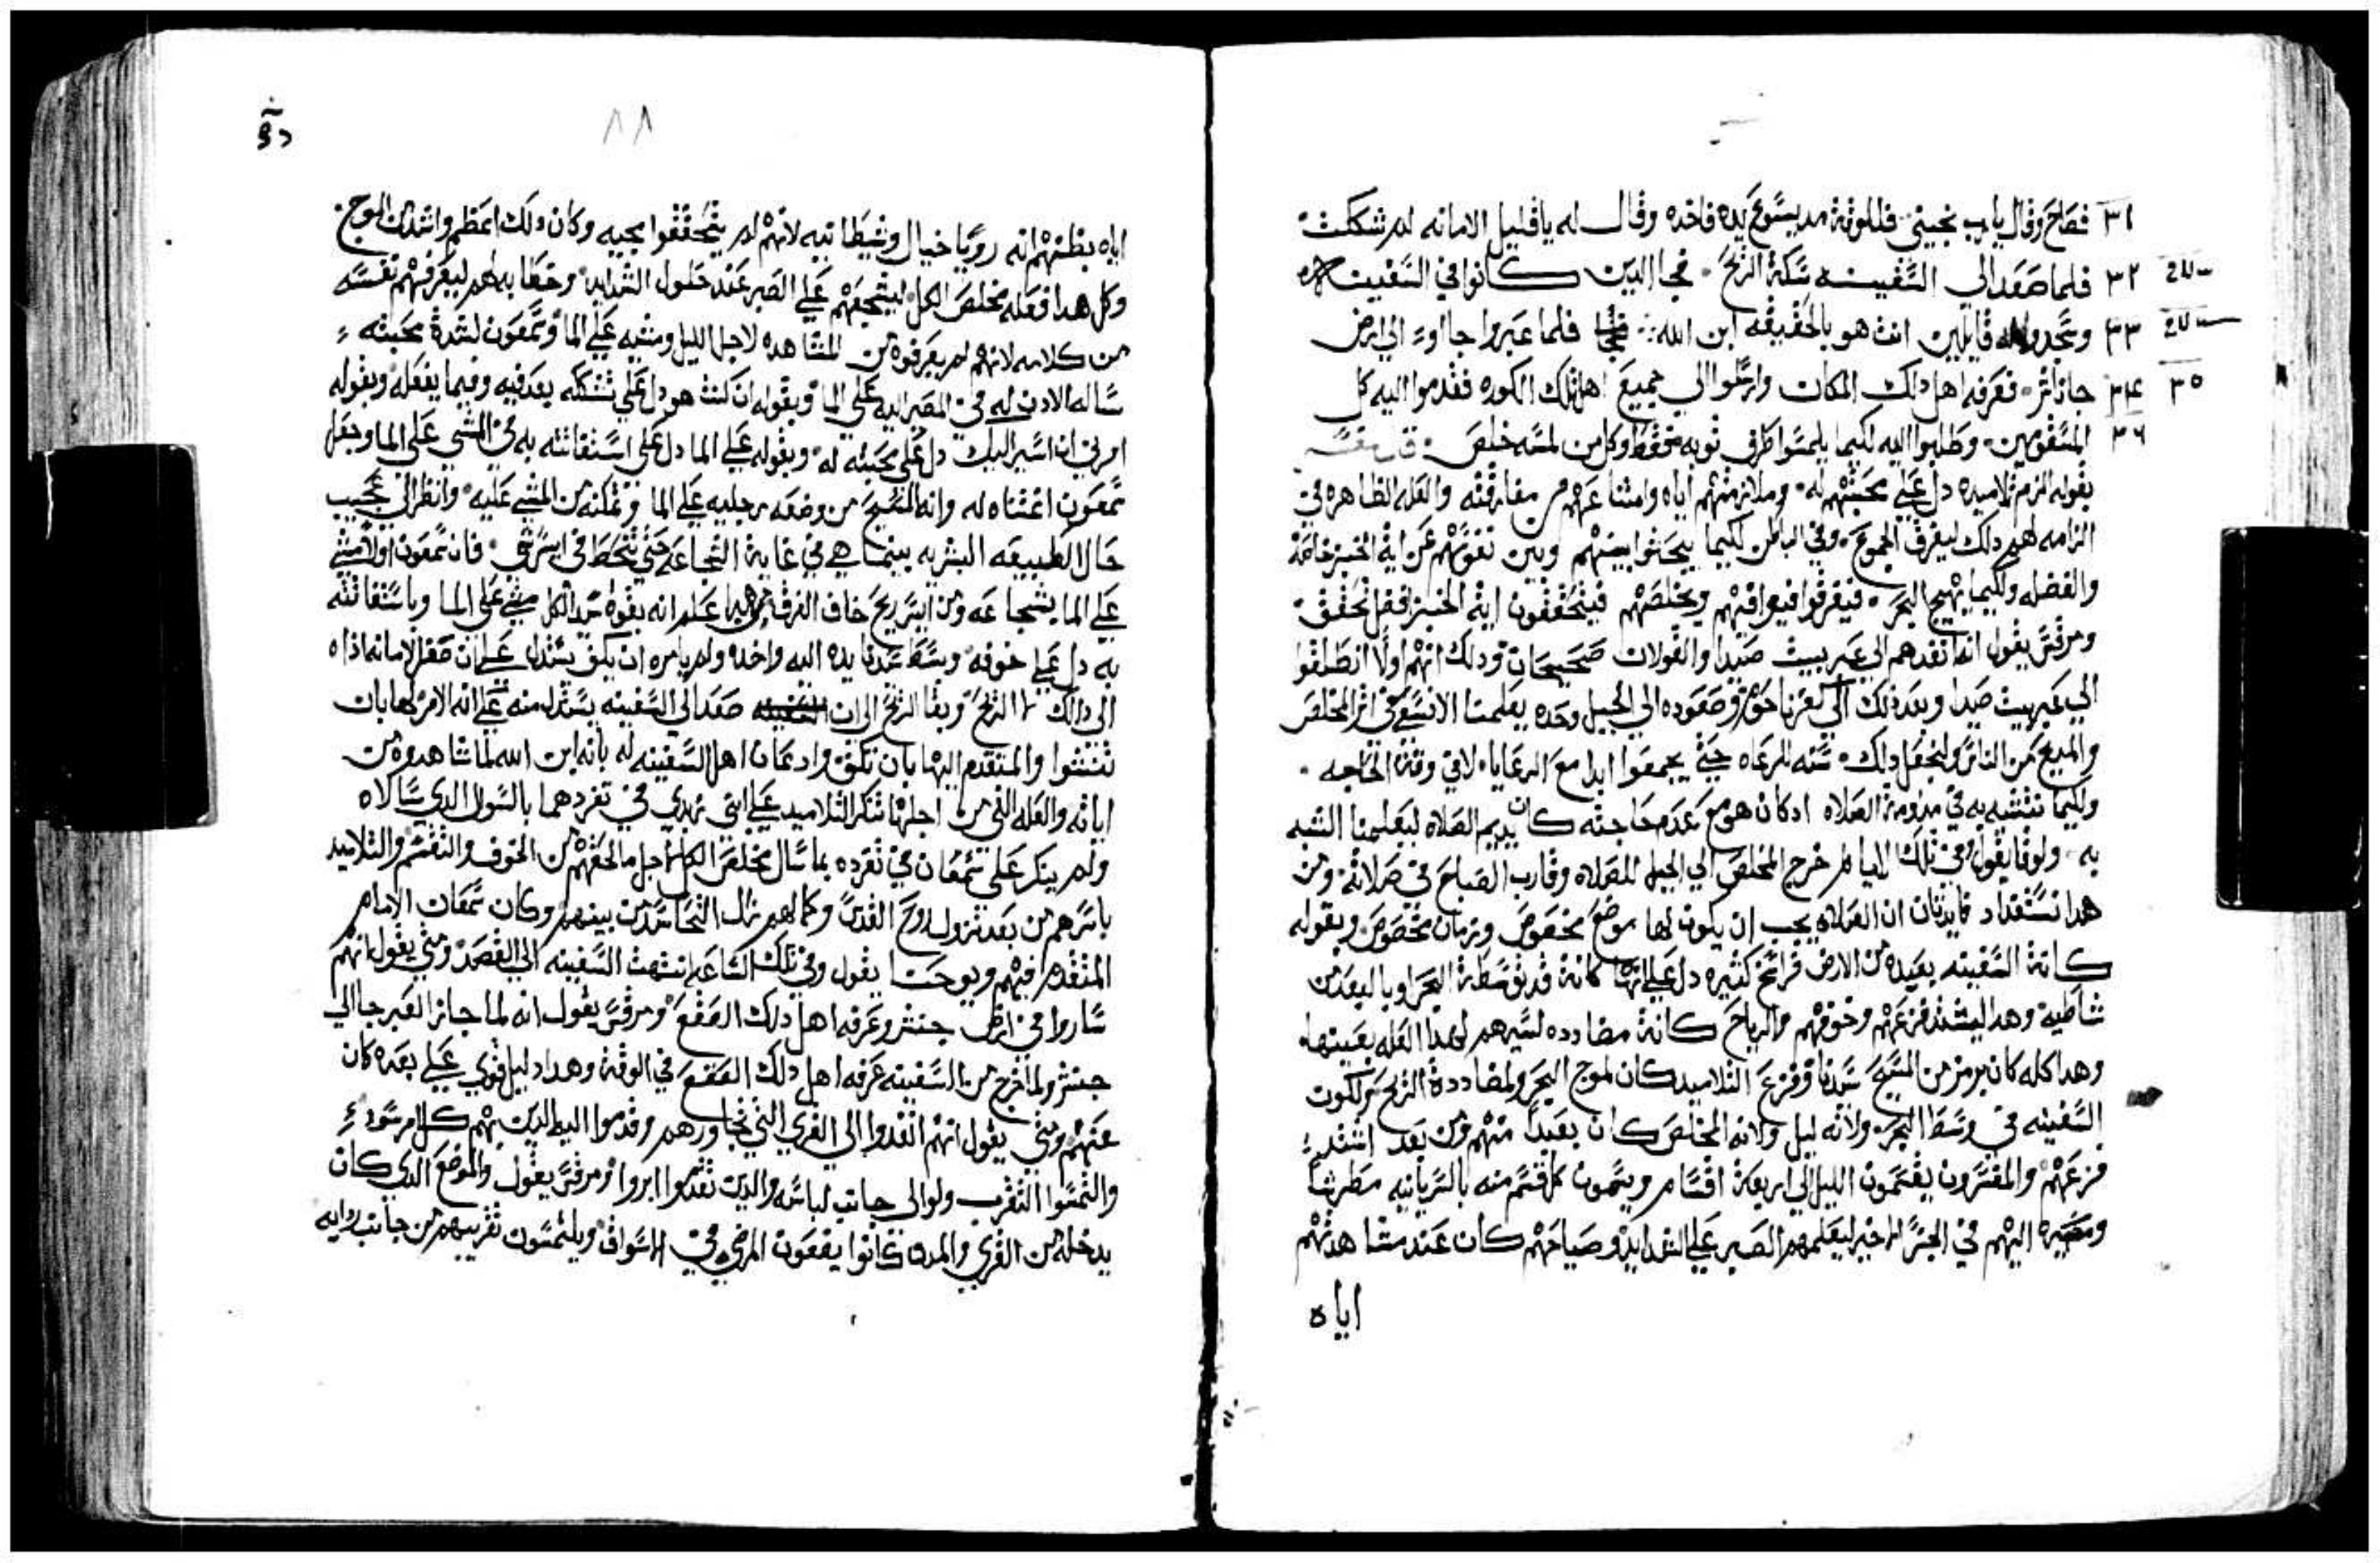 ٣١ فصاح وقال يارب نجيني فللوقت مد يسوع يده فاخده وقال له ياقليل الامانه لم شككت
٣٢ فلما صعد الي السفينه سكة الريح نجا الدين كانوا في السفينه
٣٣ وسجدوا له قايلين انت هو بالحقيقه ابن الله فلما عبروا جاا الي ارض
٣٤ ٣٥ جاناشر فعرفه اهل دلك المكان وارسلوا الي جميع اهل تلك الكوره فقدموا اليه كل
٣٦ المسقومين وطلبوا اليه لكيما يلمسوا طرف توبه فقط وكل من لمسه خلص
بقوله الزم تلاميده دل علي محبتهم له وملازمتهم اياه وامتناعهم من مفارقته والعله الظاهره في
الزامه لهم دلك ليفرق الجموع وفي الباطن لكيما يبحتوا بينهم وبين نفوسهم عن اية الخبز خاصة
والفضله ولكيما يهيج البحر فيفرقوا فيوافيهم ويخلصهم فيتحققون اية الخبز افضل تحقق
ومرقس يقول انه انفدهم الي عبر بيت صيدا والقولات صحيحان ودلك انهم اولا انطلقوا
الي عبر بيت صيدا وبعد دلك الي كفرناحوم وصعوده الي الجبل وحده يعلمنا الانسع في اتر المخلص
والمديح من الناس ولنجعل دلك سنه للرعاه حتي يجمعوا ابدا مع الرعايا لا في وقت الحاجه
ولكيما نتشبه به في مداومة الصلاه ادكان هو مع عدم حاجته كان يديم الصلاه ليعلمنا التشبه
به ولوقا يقول وفي تلك الايام خرج المخلص الي الجبل للصلاه وقارب الصباح في صلاته ومن
هدا نستفاد فايدتان ان الصلاه يجب ان يكون لها موضع مخصوص وزمان مخصوص وبقوله
كانة السفينه بعيده من الارض فراسخ كتيره دل علي انها كانة قد توسطة البحر او بالبعد من
شاطيه وهدا ليشتد فزعهم وخوفهم والرياح كانة مضادده لسيرهم لهدا العله بعينها
وهدا كله كان برمز من المسيح سيدنا وفزع التلاميد كان لموج البحر ولمضاددة الريح ولكون
السفينه في وسط البحر ولانه ليل ولانه المخلص كان بعيدا منهم ومن بعد اشتد
فزعهم والمفسرون يقسمون الليل الي اربعة اقسام ويسمون كل قسم منه بالسريانيه مطرتا
ومصيره اليهم في الجزا الاخير ليعلمهم الصبر علي الشدايد وصياحهم كان عند مشاهدتهم
اياه
٨٨
اياه بظنهم انه رويا خيال وشيطانيه لانهم لم يتحققوا مجيه وكان دلك اعظم واشد من الموج
وكل هدا فعله مخلص الكل ليشجعهم علي الصبر عند حلول الشدايد وخطابه لهم ليعرفهم نفسه
من كلامه لانهم لم يعرفوه من المشاهده لاجل الليل ومشيه علي الما وسمعون لشدة محبته
ساله الادن له في المصير اليه علي الما وبقوله ان كنت هو دل علي تشككه بعد فيه وفيما يفعله وبقوله
امرني ان اسير اليك دل علي محبته له وبقوله علي الما دل علي استقانته به في المشي علي الما وجعل
سمعون اعتناه له وانه المسيح من وضعه رجليه علي الما وتمكنه من المشي عليه وانظر الي عجيب
حال الطبيعه البشريه بينما هي في غاية الشجاعه حتي تنحط في ايسر شي فان سمعون اولا مشي
علي الما بشجاعه ومن ايسر ريح خاف الغرق علم انه بقوة سيد الكل مشي علي الما وباستقانته
به دل علي خوفه وبسط سيدنا يده اليه واخده ولم يامره ان يكف يستدل علي ان ضعف الامانه اداه
الي دلك لا الريح وبقا الريح الي ان صعد الي السفينه يستدل منه علي انه الامر لها بان
تنتشوا والمتقدم اليها بان تكف وادعان اهل السفينه له بانه ابن الله لما شاهدوه من
اياته والعله التي من اجلها تنكر التلاميد علي ابني زبدي في تفردهما بالسول الدي سالاه
ولم ينكر علي سمعان في تفرده بما سال مخلص الكل لاجل ما لحقهم من الخوف والتقسم والتلاميد
باسرهم من بعد نزول روح القدس وكمالهم زال التحاسد من بينهم وكان سمعان الامام
المتقدم فيهم ويوحنا يقول وفي تلك الساعه انتهت السفينه الي القصد ومتي يقول انهم
ساروا في ارض جنشر وعرفه اهل دلك الصقع ومرقس يقول انه لما جاز العبر جا الي
جنشر ولما خرج من السفينه عرفه اهل دلك الصقع في الوقة وهدا دليل قوي علي بعده كان
عنهم ومتي يقول انهم انفدوا الي القري التي تجاورهم وقدموا اليه الدين بهم كل امر سو
والتمسوا التقرب ولو الي جانب لباسه والدين تقدموا ابروا ومرقس يقول والموضع الدي كان
يدخله من القري والمدن كانوا يضعون المرضي في الاسواق ويلتمسون تقريبهم من جانب ردايه